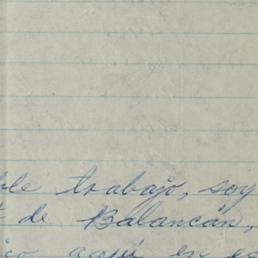 ble trabajo, soy
de Balancán,
ico aquí en es